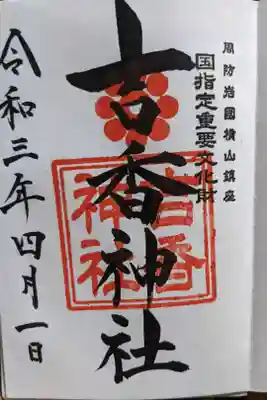 周防岩國横山鎮座
国指定重要文化財
吉香神社
吉香神社
令和三年四月一日